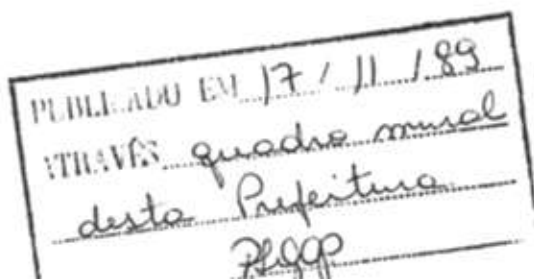 PUBLICADO EM 17 / 11 / 89
ATRAVÉS quadro mural
desta Prefeitura